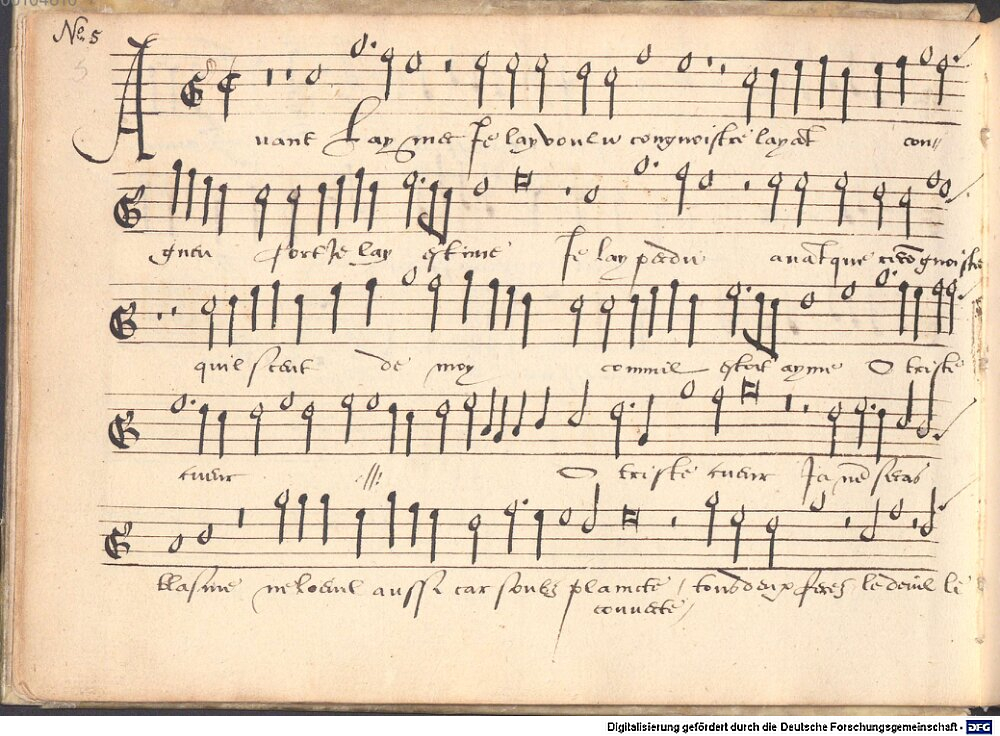 No 5
5
Avant Lay mee Je lay voulu congnoistre layāt con
gneu fort Je lay estime Je lay perdu avāt que recōgnoistre
quil scent de moy commil estoit ayme O triste
cueur O triste cueur Ja nē seras
blasme ne loeul aussi car soubz plaincte tous deux ferez le deuil le
couverte
Digitalisierung gefördert durch die Deutsche Forschungsgemeinschaft - DFG